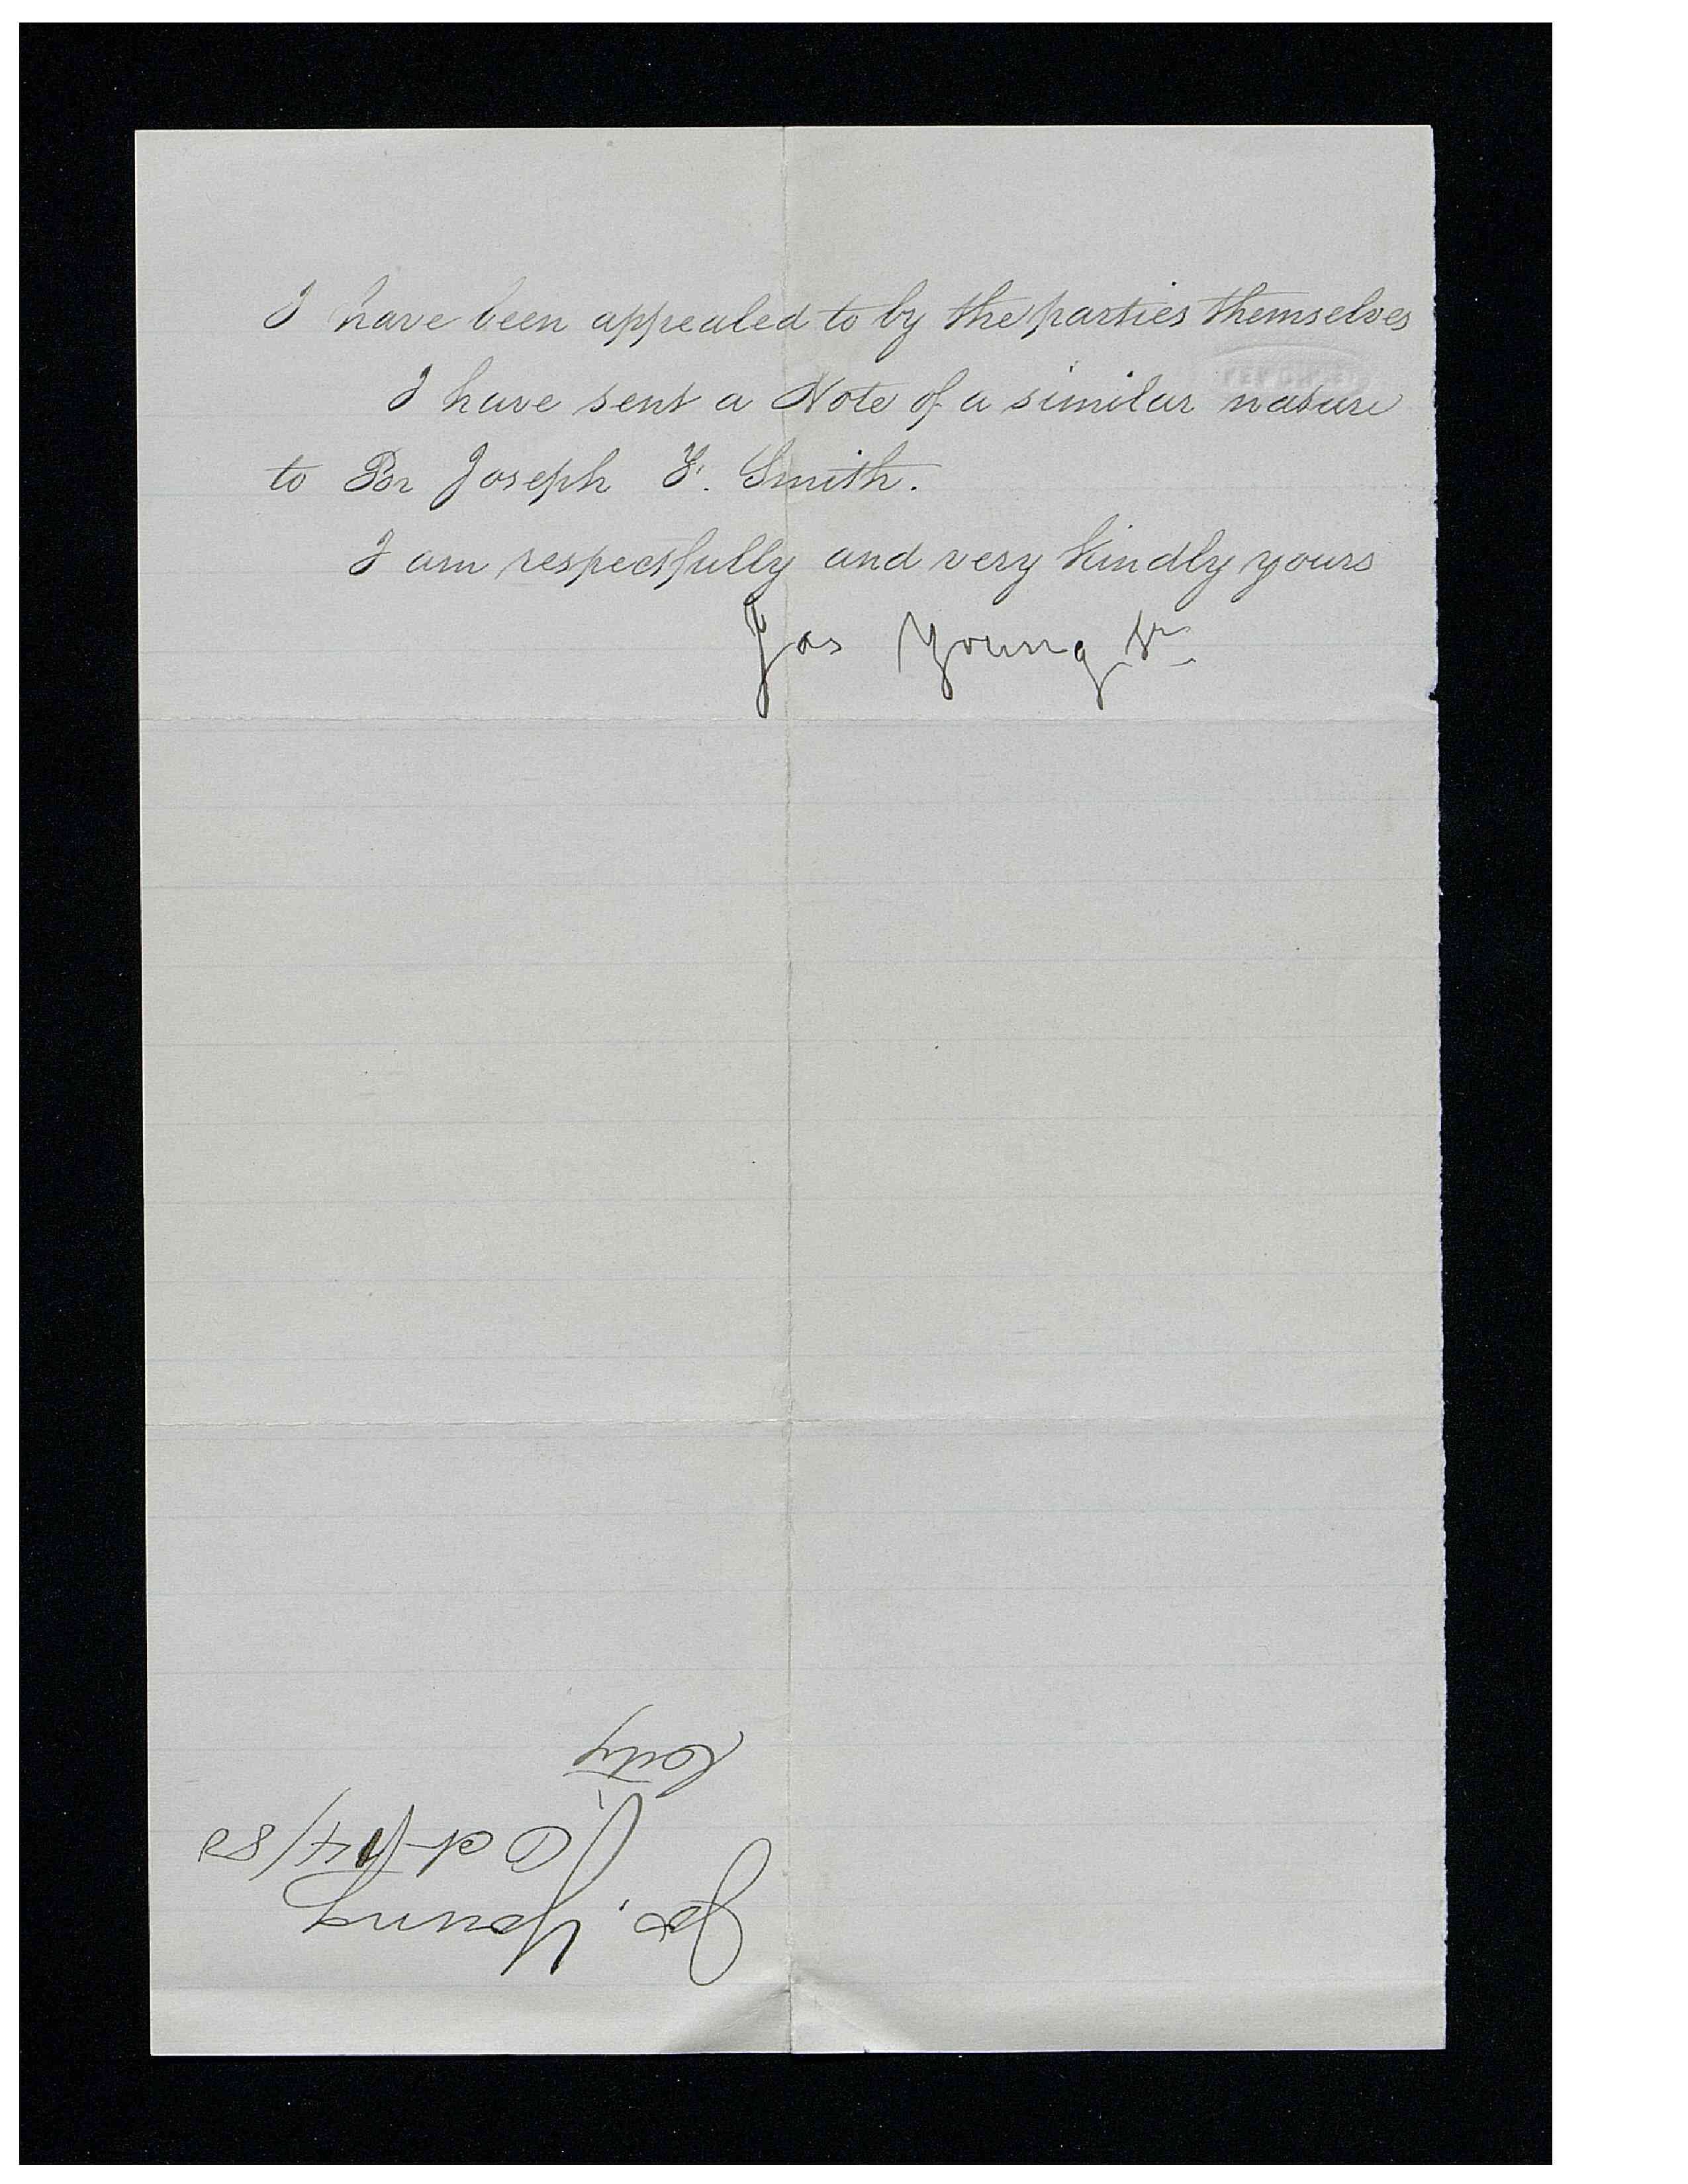 I have been appealed to by the parties themselves
I have sent a Note of a similar nature
to Br Joseph F. Smith.
I am respectfully and very kindly yours
Jos Young Sr
Jos. Young
Oct 14/80
City